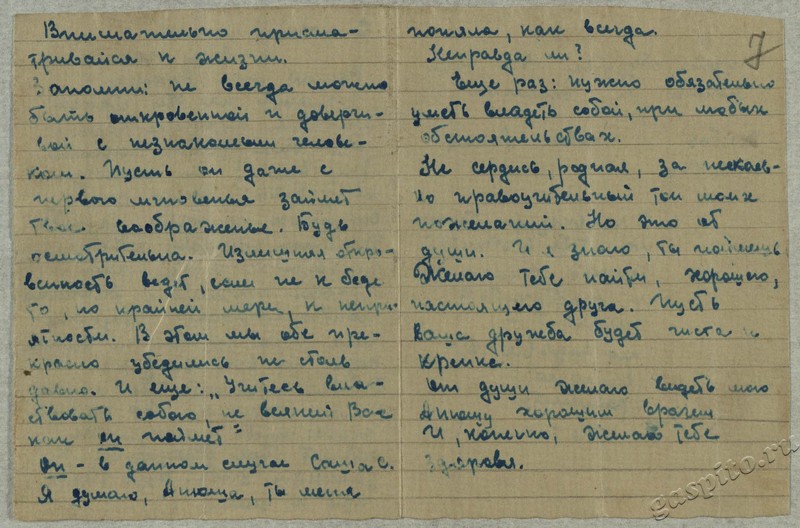 Внимательно присма-
тривайся к жизни.
Запомни: не всегда можно
быть откровенной и доверчи-
вой с незнакомым челове-
ком. Пусть он даже с
первого мгновенья займет
твое воображенье. Будь
осмотрительна. Излишняя откро-
венность ведет, если не к беде
то, по крайней мере, к непри-
ятности. В этом мы обе пре-
красно убедились не столь
давно. И еще: „Учитесь вла-
ствовать собою, не всякий Вас
как он поймет"
Он – в данном случае Саша С.
Я думаю, Анюша, ты меня
поняла, как всегда.
Неправда ли?
Еще раз: нужно обязательно
уметь владеть собой, при любых
обстоятельствах.
Не сердись, родная, за несколь-
ко нравоучительный тон моих
пожеланий. Но это от
души. И я знаю, ты поймешь
Желаю тебе найти, хорошего,
настоящего друга. Пусть
Ваша дружба будет чиста и
крепка.
От души желаю видеть мою
Анюшу хорошим врачем
И, конечно, желаю тебе
здоровья.
7
gaspito.ru